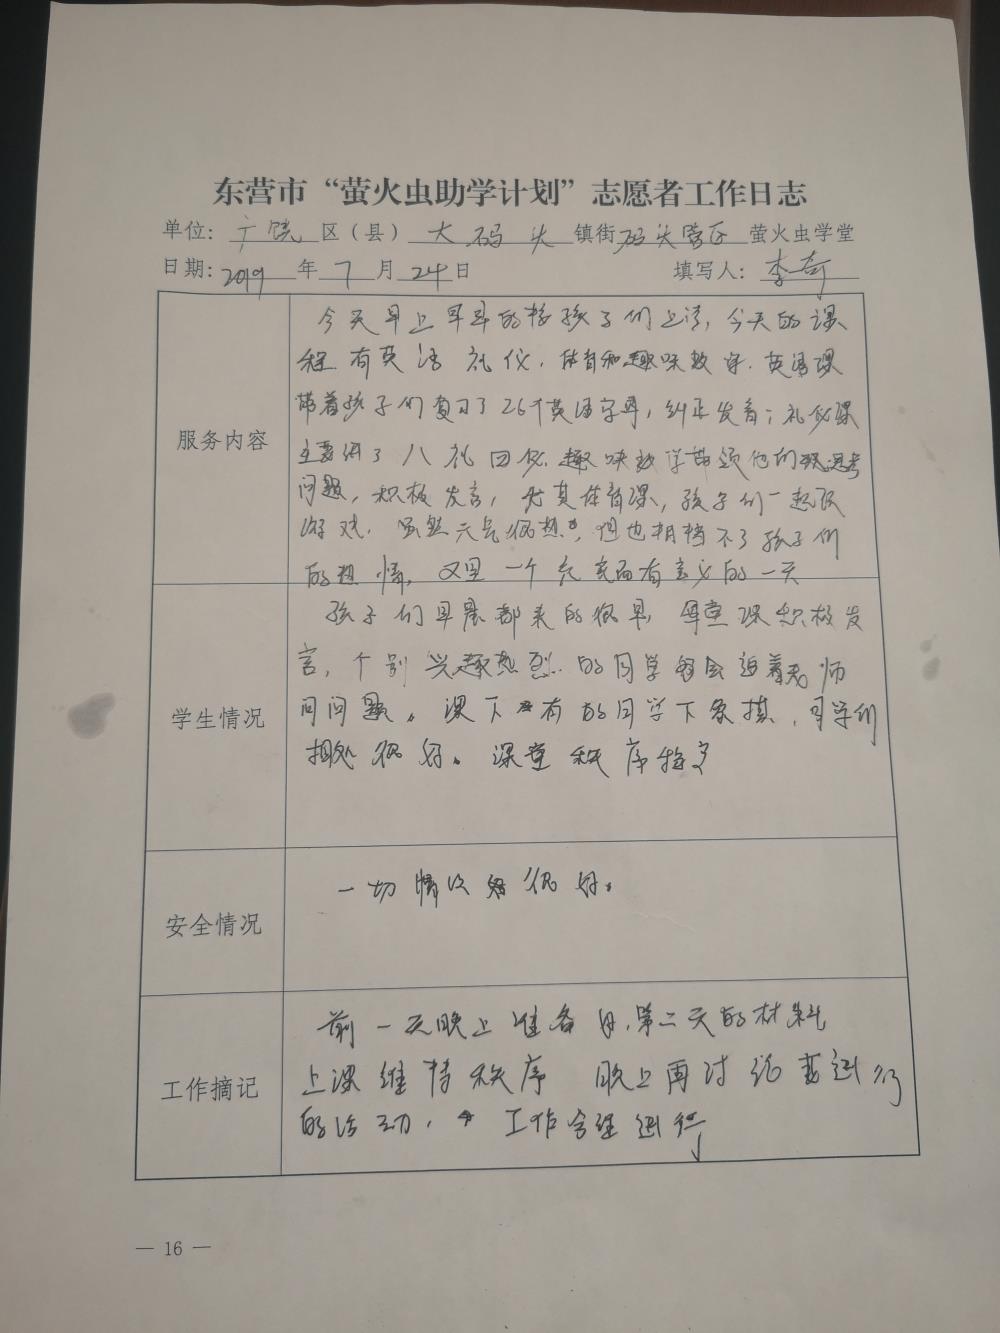 东营市“萤火虫助学计划”志愿者工作日志
单位：广饶区（县）大码头镇街码头营区萤火虫学堂
日期：2019年7月24日 填写人：李奇
服务内容
今天早上早早的 孩子们上 ，今天的课
程有英语 礼仪，体育和趣味数学．英语课
带着孩子们复习了26个英语字母，纠正发音；礼仪课
主要讲了八礼四仪，趣味数学带领他们 思考
问题，积极发言， 其体育课，孩子们一起玩
游戏．虽然天气很热，但也阻挡不了孩子们
的热情，又是一个充实而有意义的一天
学生情况
孩子们早晨都来的很早，每堂课积极发
言，个别兴趣热烈的同学都会追着老师
问问题。课下有的同学下象棋，同学们
相处很好。课堂秩序特好
安全情况
一切情况 很好。
工作摘记
前一天晚上准备好，第二天的材料
上课维持秩序 晚上再讨论要进行
的活动， 工作合理进行
— 16 —